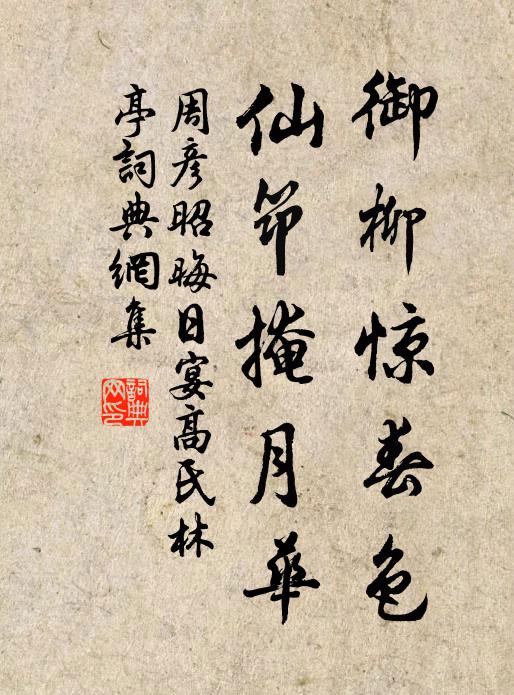 御柳惊春色
仙筇掩月華
周彦昭晦日宴高氏林
亭詞典網集
詞典
网印